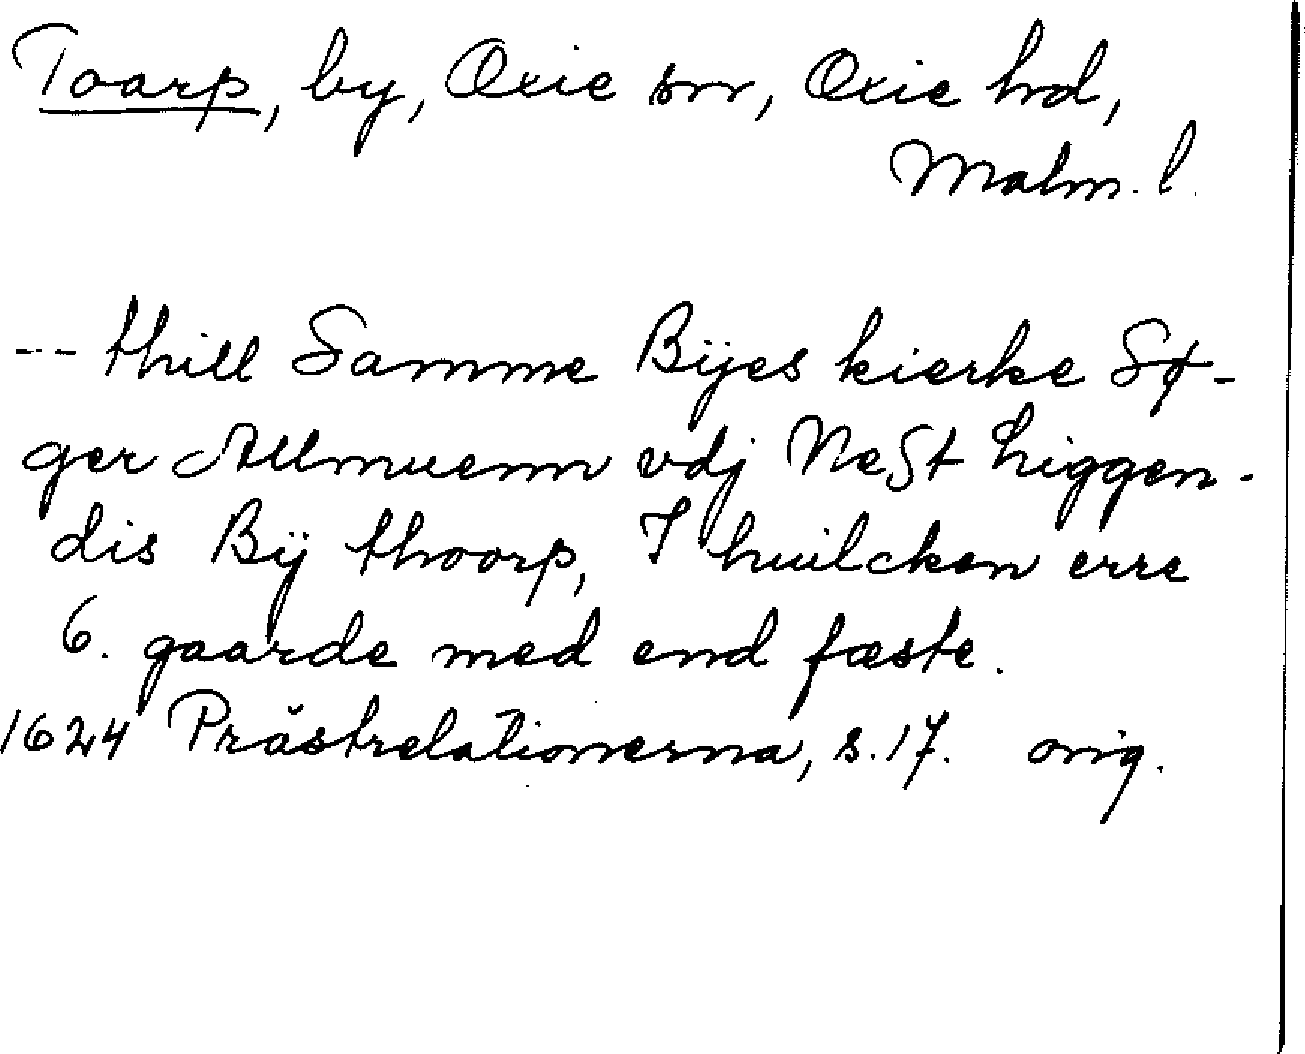 Toarp, by, Oxie sn, Oxie hd,
Malm. l.
--- thill Samme Bÿes kierke Sø-
ger Allmuenn vdj NeSt liggen-
dis Bÿ thoorp, I huilcken erre
6. gaarde med end fæste.
1624 Prästrelationerna, s. 17. orig.